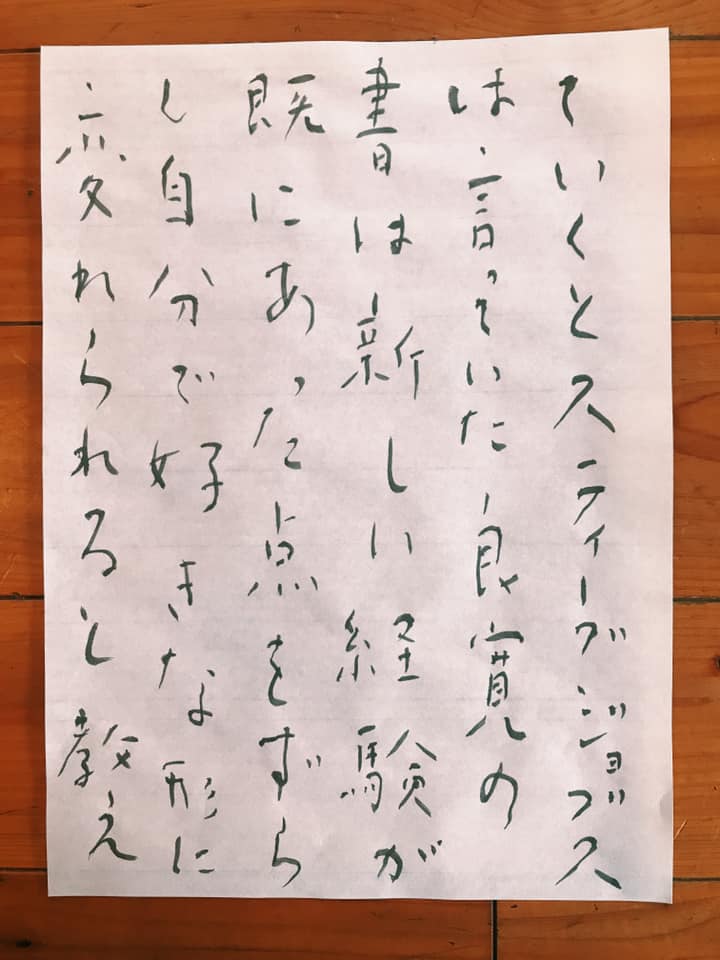 ていくとスティーブジョブス
は言っていた良寛の
書は新しい経験が
既にあった点をずら
し自分で好きな形に
変れられると教え